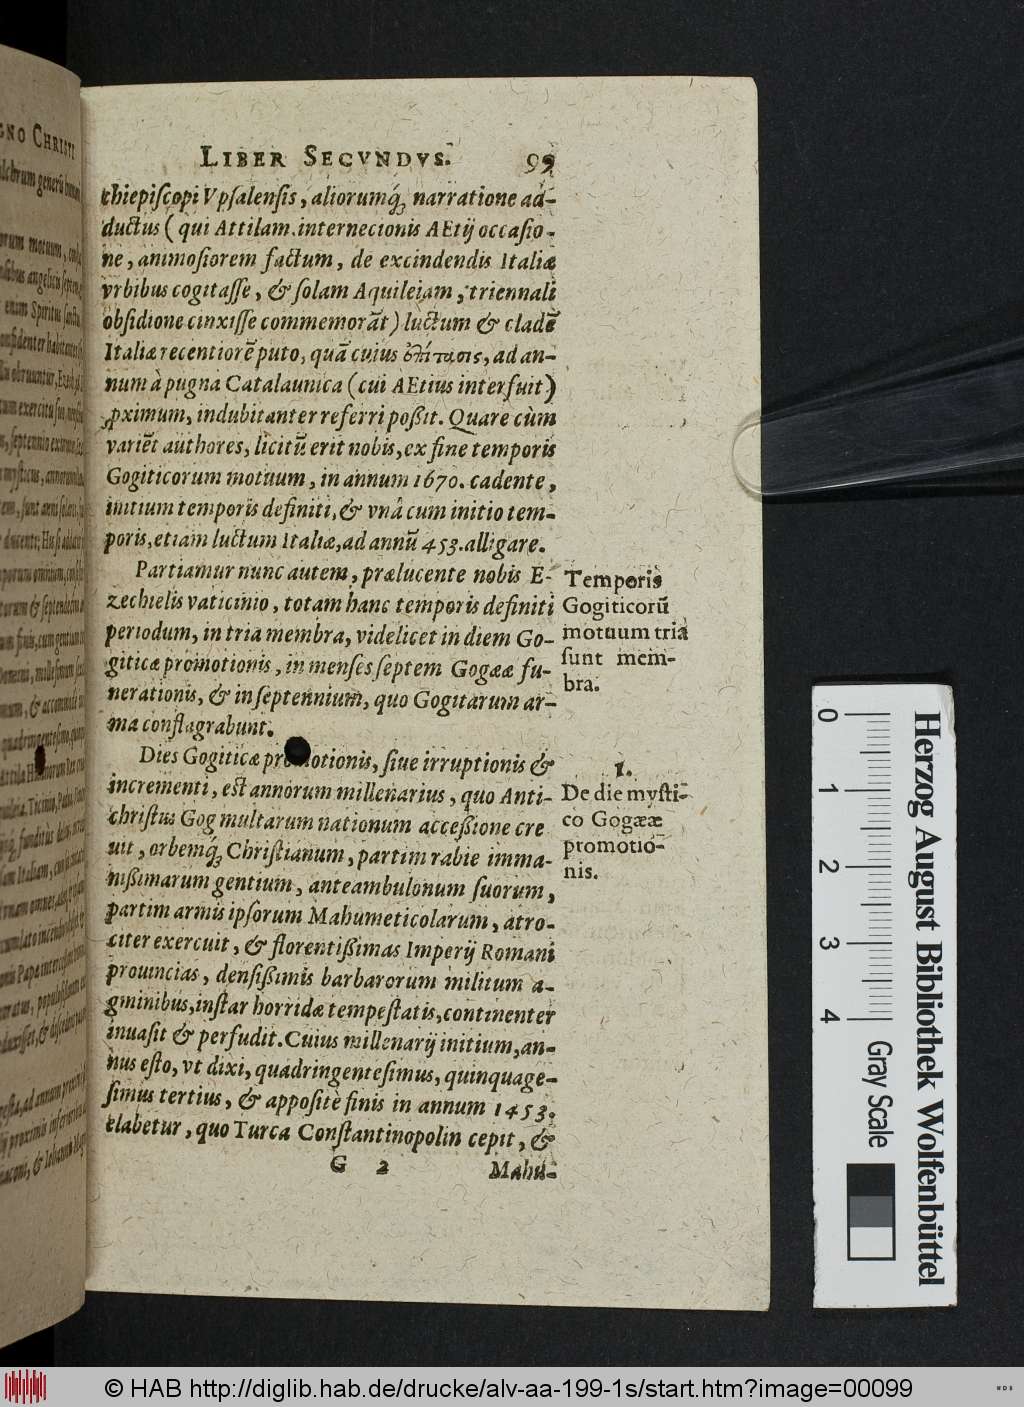 LIBER SECVNDVS. 99
chiepiſcopi Vpſalenſis, aliorumq́ꝫ narratione ad-
ductus ( qui Attilam internecionis AEtij occaſio-
ne, animoſiorem factum, de excindendis Italiæ
vrbibus cogitaſſe, & ſolam Aquileiam, triennali
obſidione cinxiſſe commemorāt) luctum & cladē
Italiæ recentiorē puto, quā cuius ἐπίτασις, ad an-
num à pugna Catalaunica (cui AEtius interfuit)
ꝓximum, indubitanter referri poßit. Quare cùm
variēt authores, licitū erit nobis, ex fine temporis
Gogiticorum motuum, in annum 1670. cadente,
initium temporis definiti, & vnâ cum initio tem-
poris, etiam luctum Italiæ, ad annū 453. alligare.
Partiamur nunc autem, prælucente nobis E-
zechielis vaticinio, totam hanc temporis definiti
periodum, in tria membra, videlicet in diem Go-
giticæ promotionis, in menſes ſeptem Gogææ fu-
nerationis, & in ſeptennium, quo Gogitarum ar-
ma conflagrabunt.
Temporis
Gogiticorū
motuum tria
ſunt mem-
bra.
Dies Gogiticæ promotionis, ſiue irruptionis &
incrementi, eſt annorum millenarius, quo Anti-
chriſtus Gog multarum nationum acceßione cre
uit, orbemq́ꝫ Chriſtianum, partim rabie imma-
nißimarum gentium, anteambulonum ſuorum,
partim armis ipſorum Mahumeticolarum, atro-
citer exercuit, & florentißimas Imperij Romani
prouincias, denſißimis barbarorum militum a-
gminibus, inſtar horridæ tempeſtatis, continenter
inuaſit & perfudit. Cuius millenarij initium, an-
nus eſto, vt dixi, quadringenteſimus, quinquage-
ſimus tertius, & appoſitè finis in annum 1453.
elabetur, quo Turca Conſtantinopolin cepit, &
1.
De die myſti-
co Gogææ
promotio-
nis.
G 2 Mahu-
0 1 2 3 4
Herzog August Bibliothek Wolfenbüttel
Gray Scale
© HAB http://diglib.hab.de/drucke/alv-aa-199-1s/start.htm?image=00099